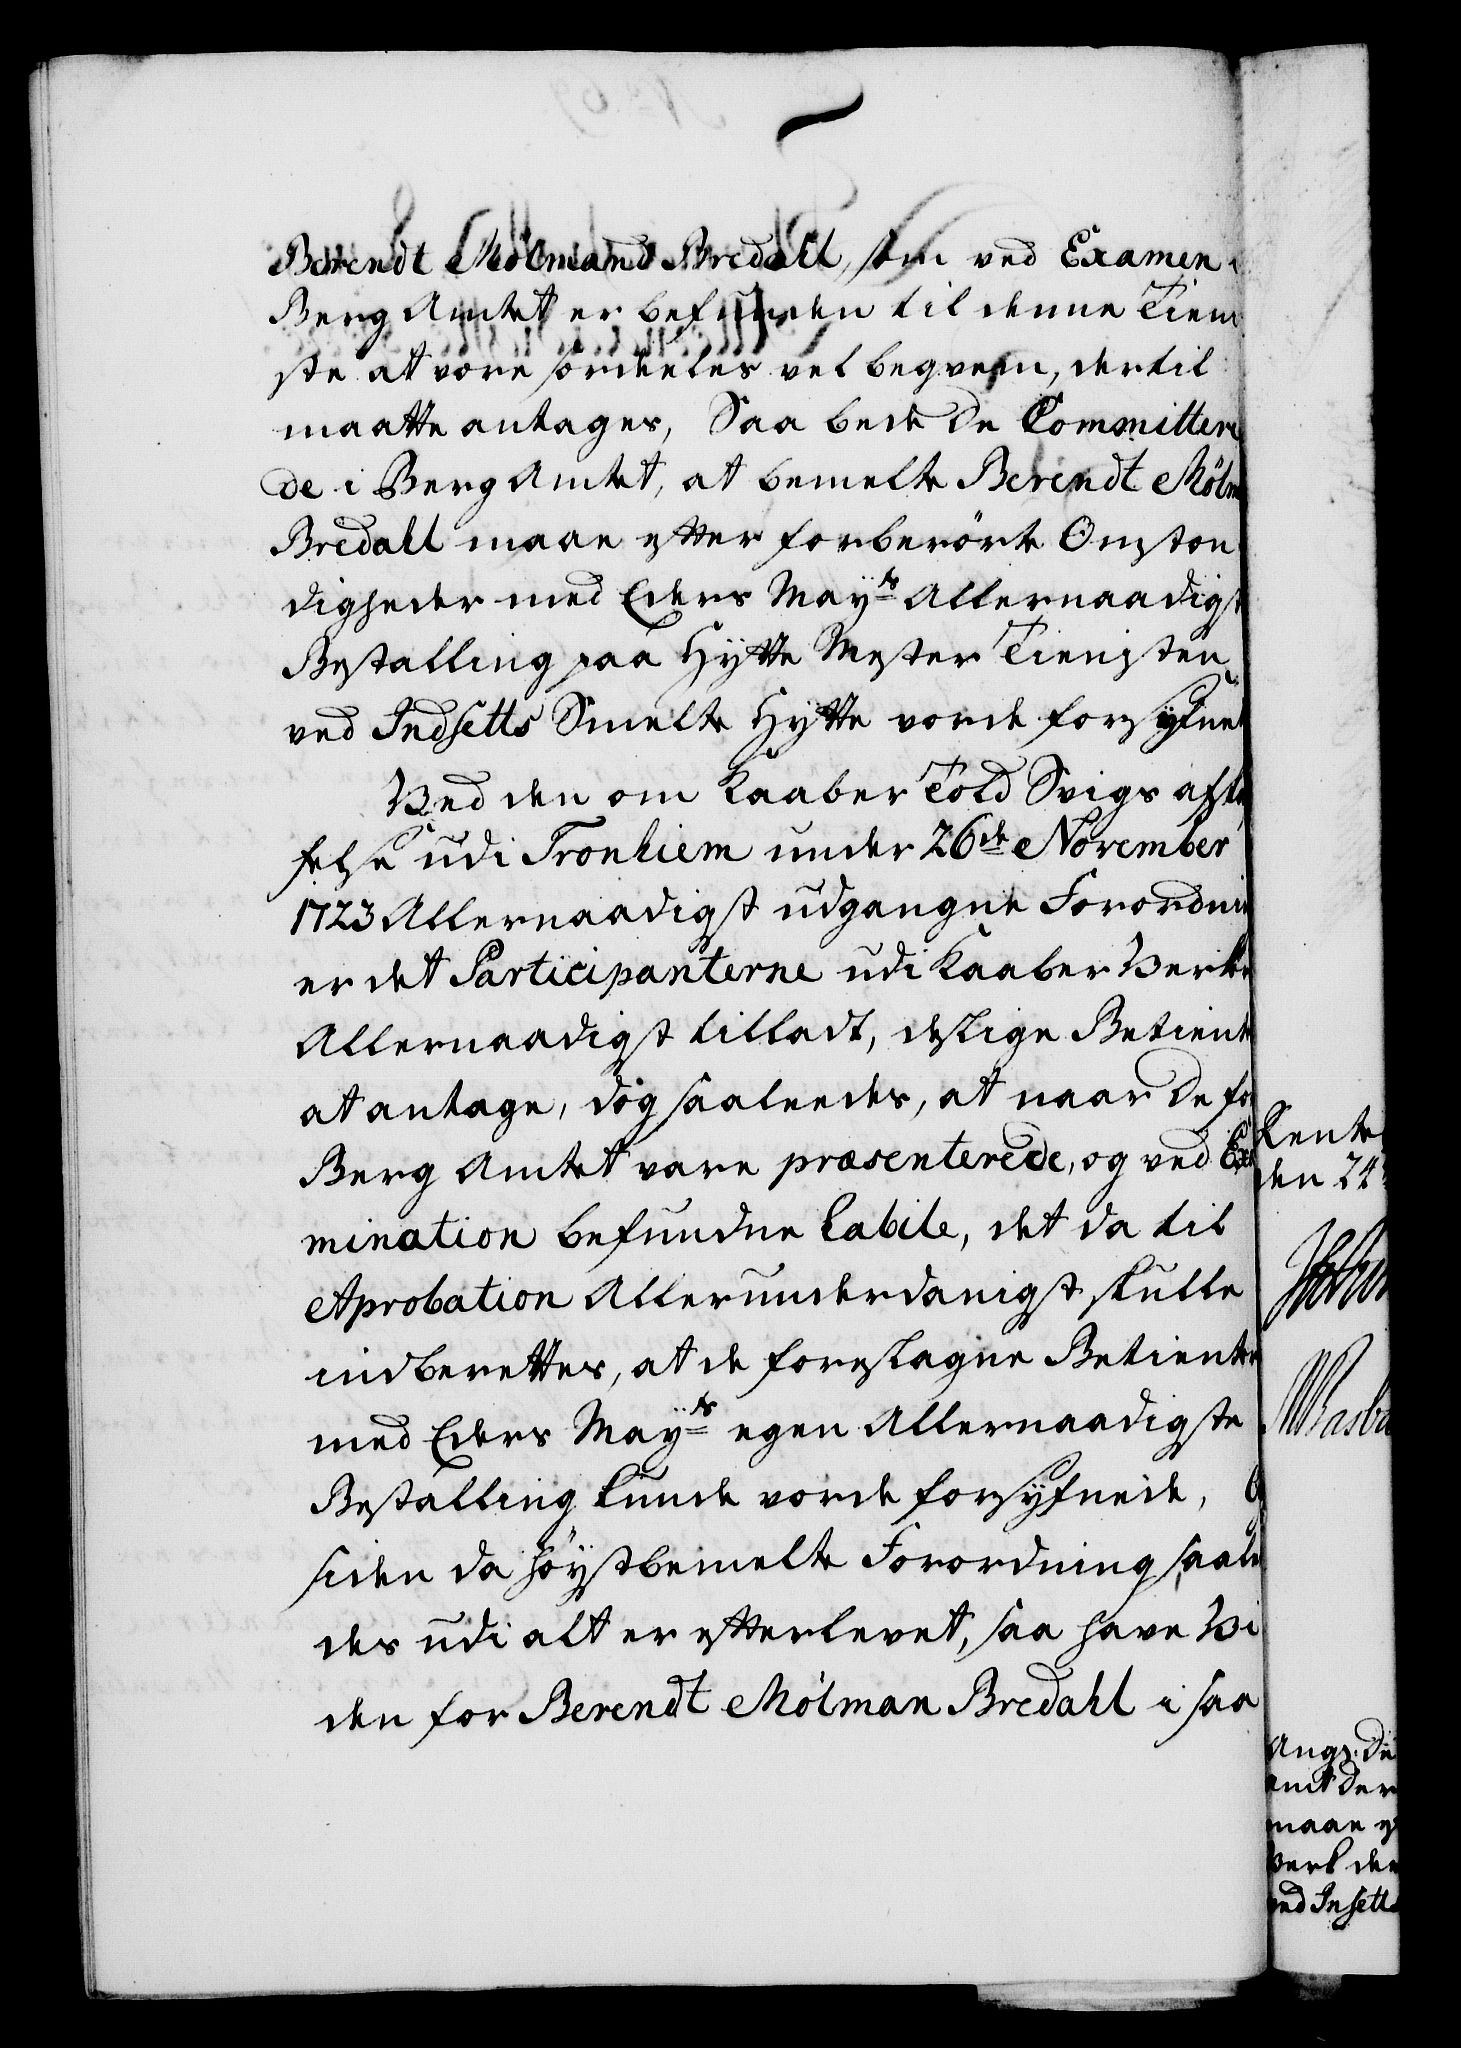 Berendt Mölmand Bredahl, som ved Examen i
Berg Amtet er befunden til denne Tiene
ste at vore særdeeles vel beqvem, dertil
maatte antages, Saa bede De Committere
de i Berg Amtet, at bemelte Berendt Mölm
Bredahl maae efter forberörte Omstæn
digheder med Eders Mayts Allernaadigst
Bestalling paa Hytte Mester Tienisten
ved Indsetts Smelte Hytte vorde forsyfnet
Ved den om Kaaber Told Svigs afska
felse udi Tronhiem under 26de November
1723 Allernaadigst udgangne Forordni
er det Participanterne udi Kaaber Verker
Allernaadigst tilladt, deslige Betiente
at antage, dog saaleedes, at naar De fo
Berg Amtet vare præsenterede, og ved Exa
mination befundne habile, det da til
Aprobation Allerunderdanigst skulle
indberettes, at de foreslagne Betiente
med Eders Mayts egen Allernaadigste
Bestalling kunde vorde forsyfnede,
siden da höystbemelte Forordning saale
des udi alt er efterlevet, saa have Vi
den for Berendt Mölman Bredahl i saa
Rente
den 24
Ang:de
amt der
maae
Verk der
ved Insetts